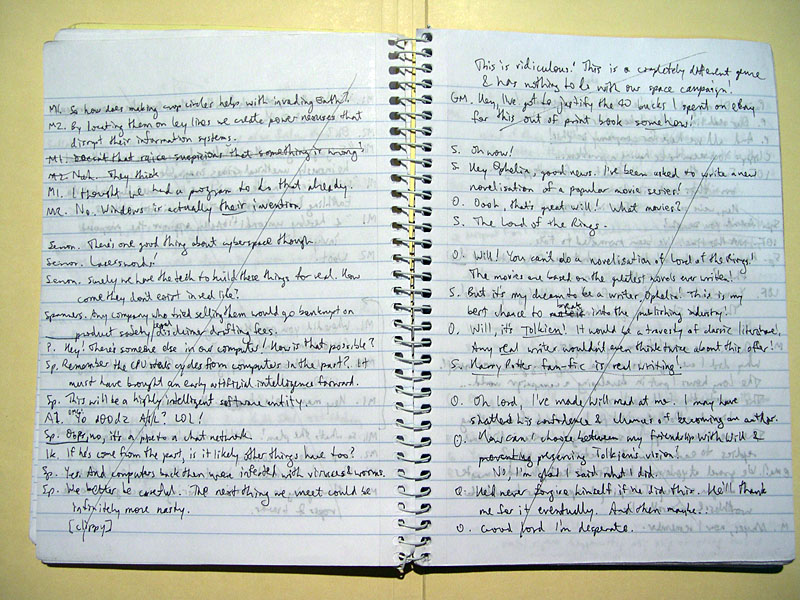 M1. So how does making crop circles help with invading Earth?
M2. By locating them on ley lines we create power nexuses that
disrupt their information systems.
M1. Doesn't that raise suspicions that something is wrong?
M2. Nah. They think
M1. I thought we had a program to do that already.
M2. No. Windows is actually their invention.
Simon. There's one good thing about cyberspace though.
Simon. Laser swords!
Simon. Surely we have the tech to build these things for real. How
come they don't exist in real life?
Spanners. Any company who tried selling them would go bankrupt on
product safety legal disclaimer drafting fees.
?. Hey! There's someone else in our computer! How is that possible?
Sp. Remember the CPU steals cycles from computers in the past? It
must have bought an early artificial intelligence forward.
Sp. This will be a highly intelligent software entity.
AI. OMG! Yo d00dz A/S/L? LOL!
Sp. Oops, no, it's a pipe to a chat network.
Ik. If he's come from the past, is it likely other things have too?
Sp. Yes. And computers back then were infested with viruses & worms.
Sp. We better be careful. The next thing we meet could be
infinitely more nasty.
[clippy]
This is ridiculous! This is a completely different genre
& has nothing to do with our space campaign!
GM. Hey, I've got to justify the 40 bucks I spent on eBay
for this out of print book somehow!
S. Oh wow!
S. Hey Ophelia, good news. I've been asked to write a new
novelisation of a popular movie series!
O. Oooh, that's great Will! What movies?
S. The Lord of the Rings.
O. Will! You can't do a novelisation of Lord of the Rings!
The movies are based on the greatest novels ever written!
S. But it's my dream to be a writer, Ophelia! This is my
best chance to break into the publishing industry!
O. Will, it's Tolkien! It would be a travesty of classic literature.
Any real writer wouldn't even think twice about this offer!
S. Harry Potter fan-fic is real writing!
O. Oh lord, I've made Will mad at me. I may have
shattered his confidence & chances of becoming an author.
O. How can I choose between my friendship with Will &
preventing preserving Tolkien's vision!
No, I'm glad I said what I did.
O. He'd never forgive himself if he did this. He'll thank
me for it eventually. And then maybe.
O. Good lord I'm desperate.